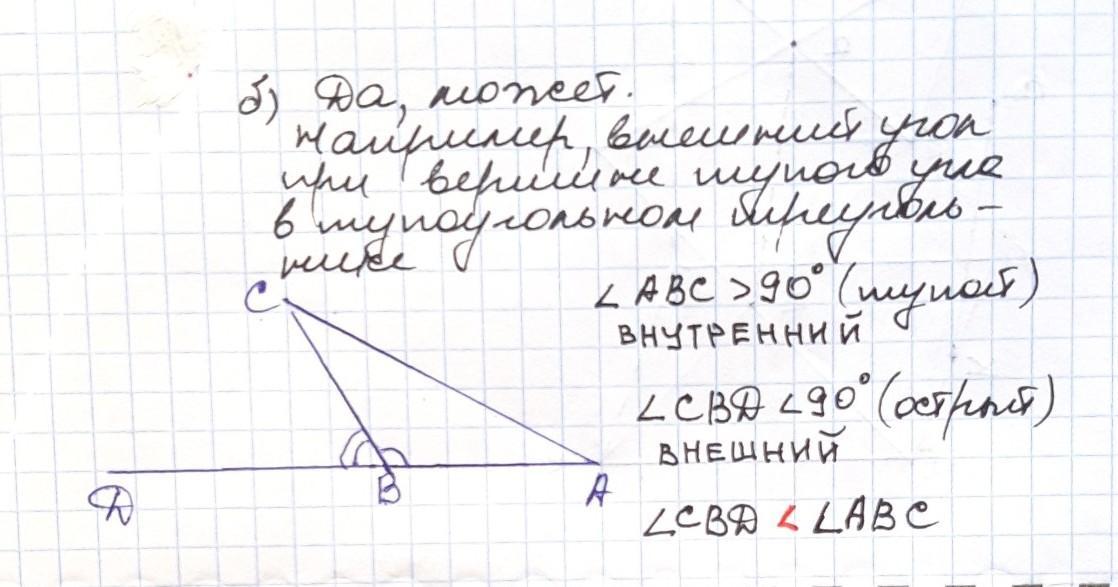 б) Да, может.
Например, внешний угол
при вершине тупого угла
в тупоугольном треуголь-
нике
C
∠ABC > 90° (тупой)
ВНУТРЕННИЙ
∠CBD < 90° (острый)
ВНЕШНИЙ
D B A
∠CBD < ∠ABC